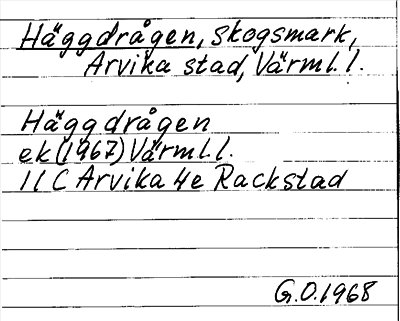 Häggdrågen, skogsmark,
Arvika stad, Värml. l.
Häggdrågen
ek (1967) Värml. l.
11 C Arvika 4e Rackstad
G.O. 1968